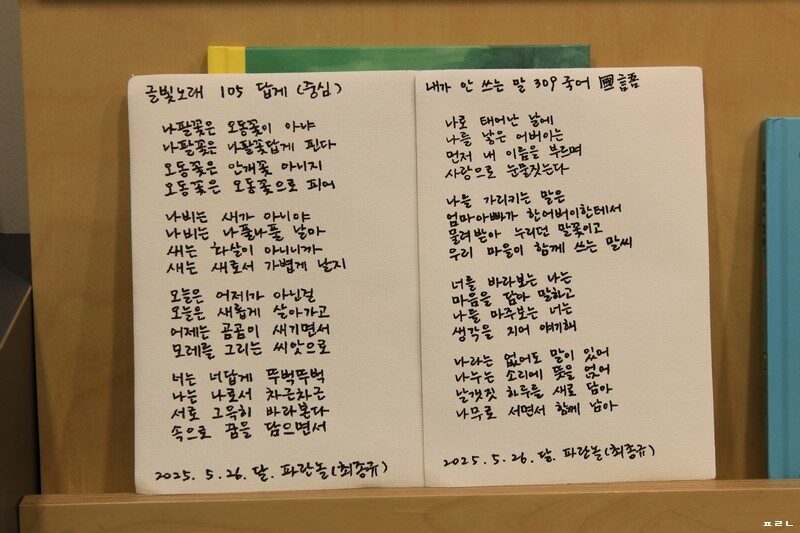 글빛노래 105 답게 (중심)
나팔꽃은 오동꽃이 아냐
나팔꽃은 나팔꽃답게 핀다
오동꽃은 안개꽃 아니지
오동꽃은 오동꽃으로 피어
나비는 새가 아니야
나비는 나풀나풀 날아
새는 화살이 아니니까
새는 새로서 가볍게 날지
오늘은 어제가 아닌걸
오늘은 새롭게 살아가고
어제는 곰곰이 새기면서
모레를 그리는 씨앗으로
너는 너답게 뚜벅뚜벅
나는 나로서 차근차근
서로 그윽히 바라본다
속으로 꿈을 담으면서
2025. 5. 26. 달. 파란놀(최종규)
내가 안 쓰는 말 309 국어 國語
나로 태어난 날에
나를 낳은 어버이는
먼저 내 이름을 부르며
사랑으로 눈물짓는다
나를 가리키는 말은
엄마아빠가 한어버이한테서
물려받아 누리던 말꽃이고
우리 마을이 함께 쓰는 말씨
너를 바라보는 나는
마음을 담아 말하고
나를 마주보는 너는
생각을 지어 얘기해
나라는 없어도 말이 있어
나누는 소리에 뜻을 얹어
날갯짓 하루를 새로 담아
나무로 서면서 함께 남아
2025. 5. 26. 달. 파란놀(최종규)
ㅍㄹㄴ